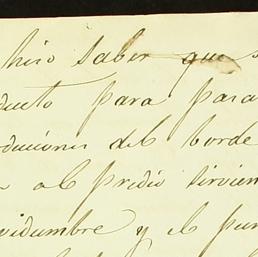 hizo saber que
ducto para para
oduciones del borde
al predio sirvien
vidumbre y el pun